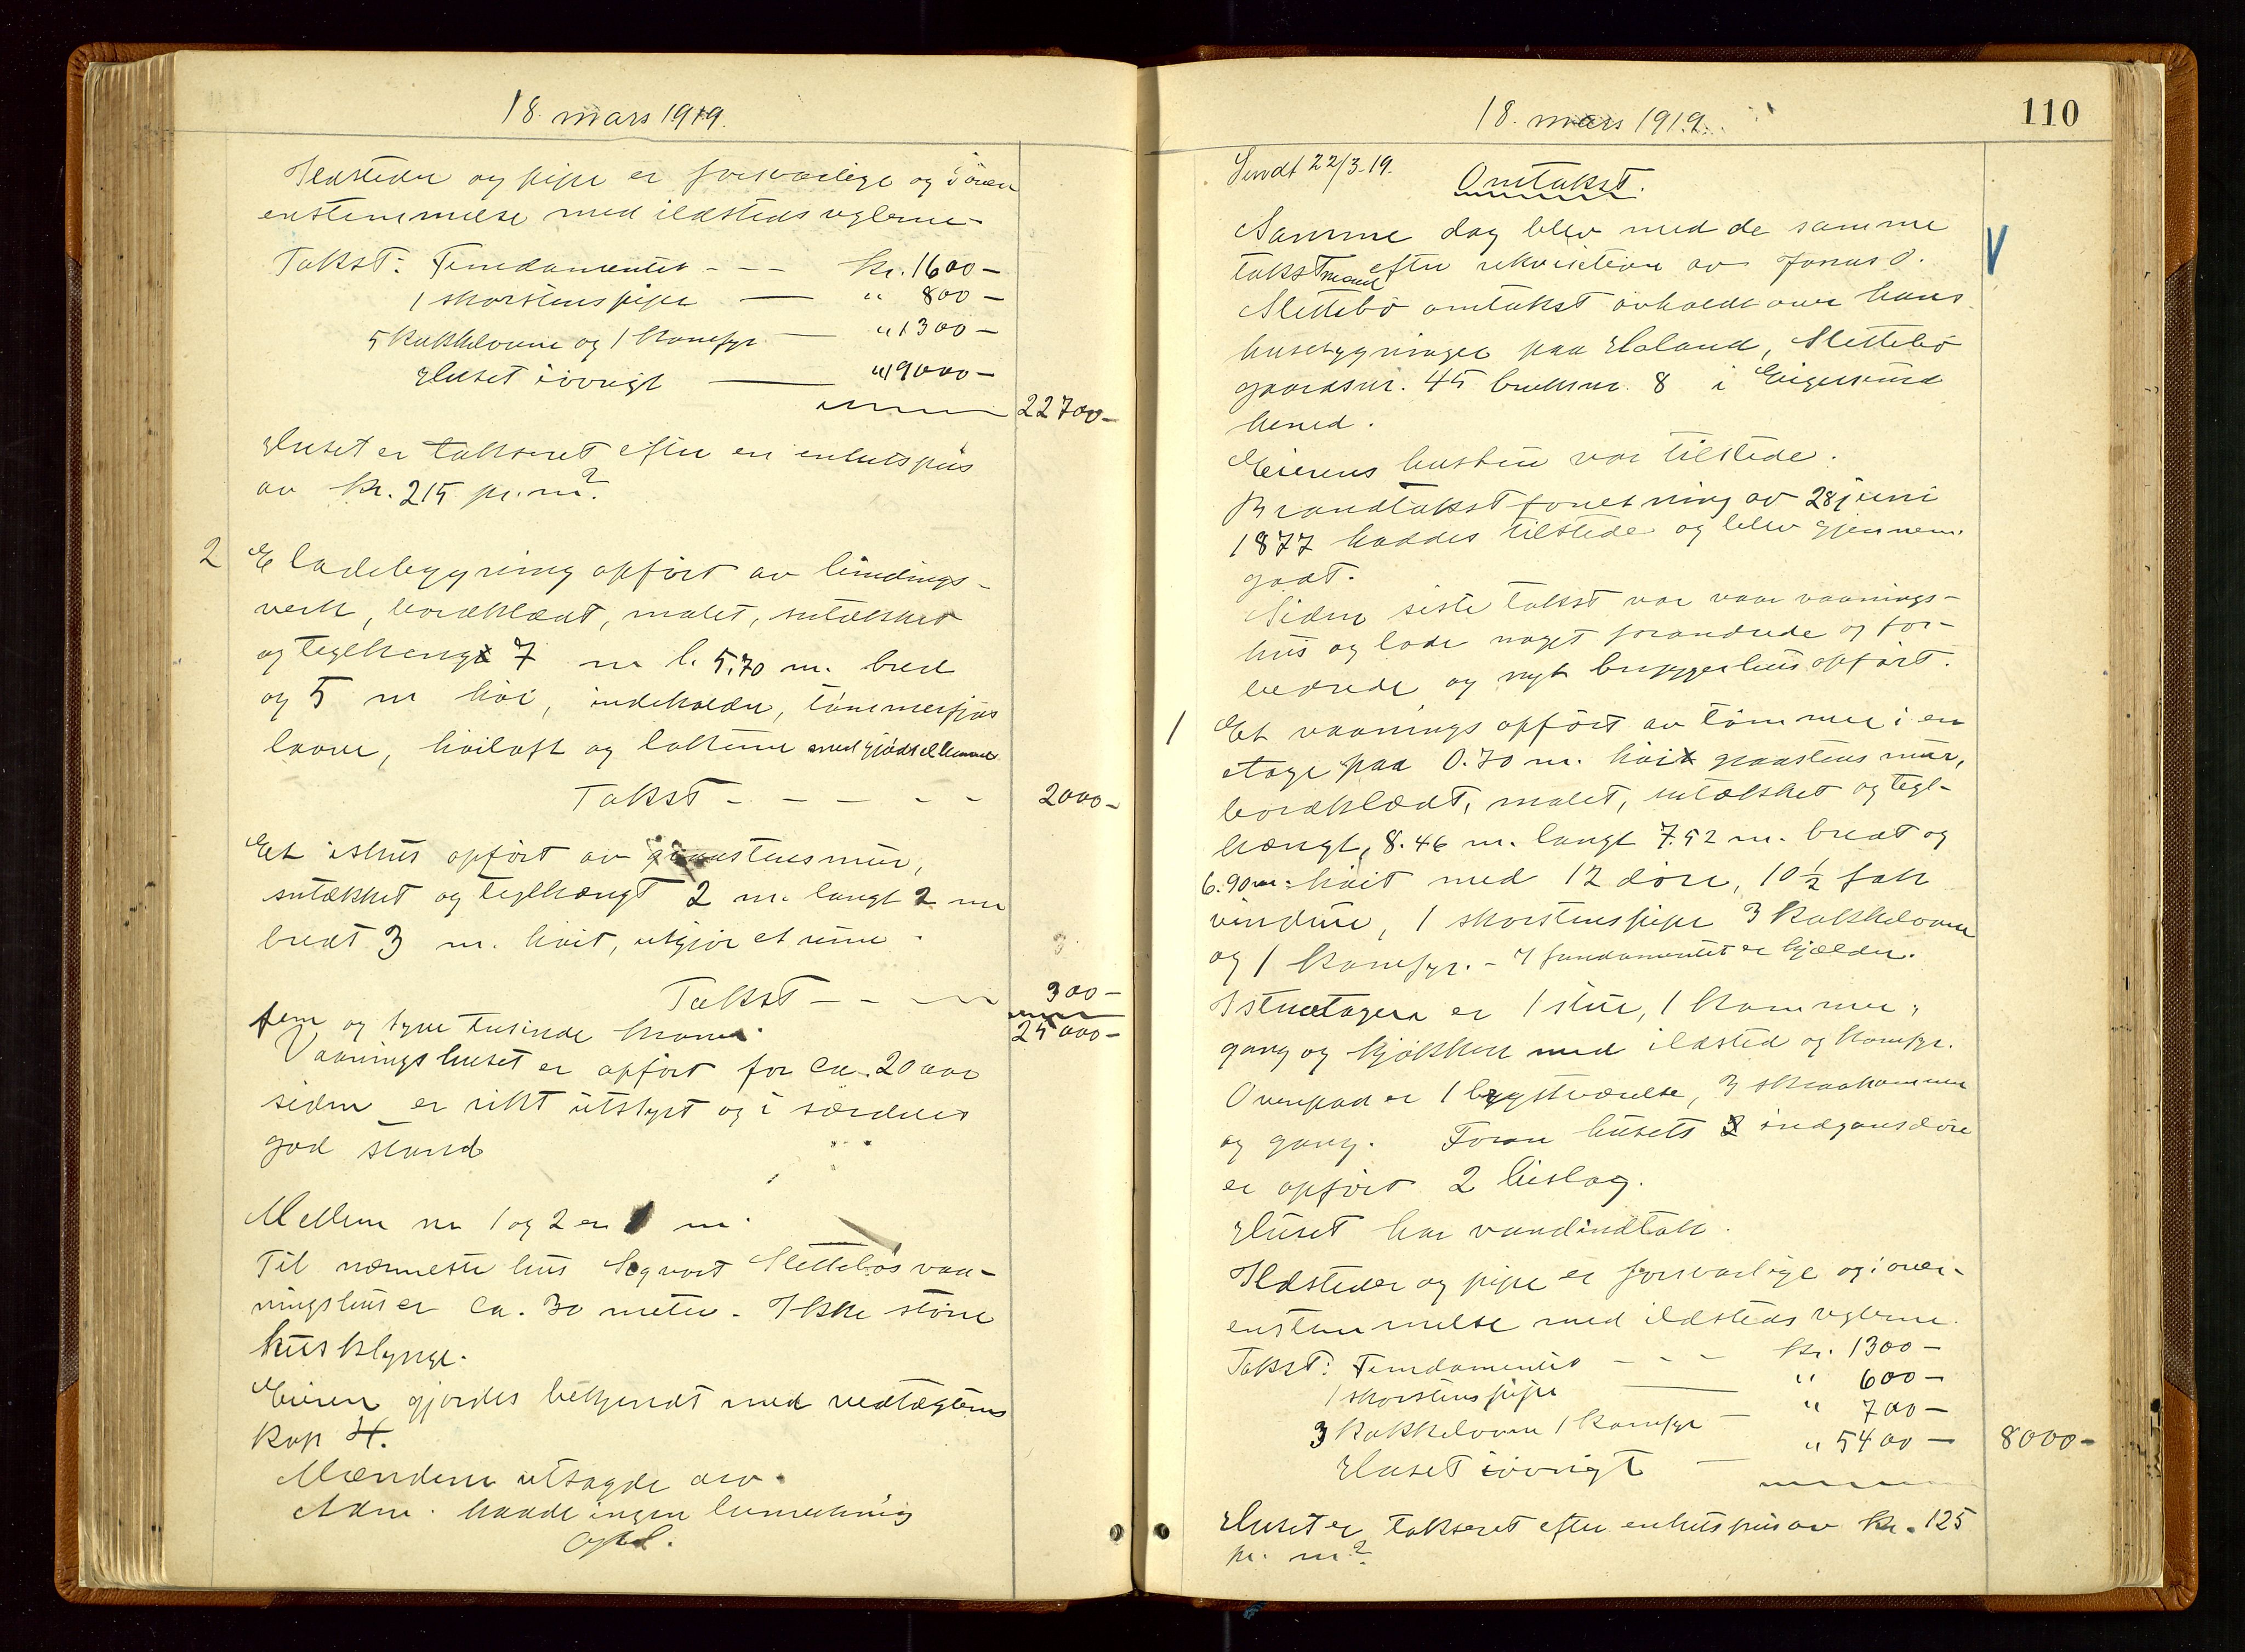 18. mars 1919.
Ildsteder og pipe er forsvarlige og i over
enstemmelse med ildstedsreglerne -
Takst: Fundamentet - - - kr. 1600 -
1 skorstenspipe — " 800 -
5 kakkelovne og 1 komfyr — " 1300 -
Huset iøvrigt — " 19000 -
22700 -
Huset er takseret efter en enhetspris
av kr. 215 pr. m².
2 E ladebygning opført av bindings-
verk, bordklædt, malet, sutækket
og teglhengt 7 m l. 5,70 m. bred
og 5 m høi, indeholder, tømmerfjøs
laave, høiloft og lokrum med gjødselkummer
Takst - - - - - 2000 -
Et ishus opført av graastensmur,
sutækket og teglhængt 2 m. langt 2 m
bredt 3 m. høit, utgjør et rum.
Takst - - - 300 -
fem og tyve tusinde kroner. 25000 -
Vaaningshuset er opført for ca. 20 aar
siden er rikt utstyrt og i særdeles
god stand
Mellem nr 1 og 2 er 1 m.
Til nærmeste hus Sigvart Slettebøs vaa-
ningshus er ca. 30 meter. Ikke større
husklynge.
Eieren gjordes bekjendt med vedtægtens
kap 4.
Mændene utsagde
Adm. havde ingen bemerkning
Opl.
18. mars 1919. 110
Sendt 22/3-19.
Omtakst.
Samme dag blev med de samme
takstmænd efter rekvisition av Jonas O.
Slettebø omtakst avholdt over hans
husebygninger paa Haland, Slettebø
gaardsnr. 45 bruksnr. 8 i Eigersund
herred.
Eierens hustru var tilstede.
Brandtakstforretning av 28 juni
1877 haddes tilstede og blev gjennem-
gaat.
Siden siste takst var vaar vaanings-
hus og lade noget forandrede og for-
bedrede og nyt bryggerhus opført.
1 Et vaanings opført av tømmer i en
etage paa 0.70 m. høi graastens mur,
bordklædt, malet, sutækket og tegl-
hængt, 8.46 m. langt 7.52 m. bredt og
6.90 m. høit med 12 døre, 10 ½ fak
vinduer, 1 skorstenspipe 3 kakkelovne
og 1 komfyr. - I fundamentet er kjælder.
I stuetagen er 1 stue, 1 kammer,
gang og kjøkken med ildsted og komfyr.
Ovenpaa er 1 bygstværelse, 3 skraakammer
og gang. Foran husets 2 indgansdøre
er opført 2 bislag.
Huset har vandindtak.
Ildsteder og pipe er forsvarlige og i over-
enstemmelse med ildsteds reglerne.
Takst: Fundamentet - - - kr. 1300 -
1 skorstenspipe — " 600 -
3 kakkelovne 1 komfyr — " 700 -
Huset iøvrigt — " 5400 - 8000 -
Huset er takseret efter enhetspris av kr. 125
pr. m².